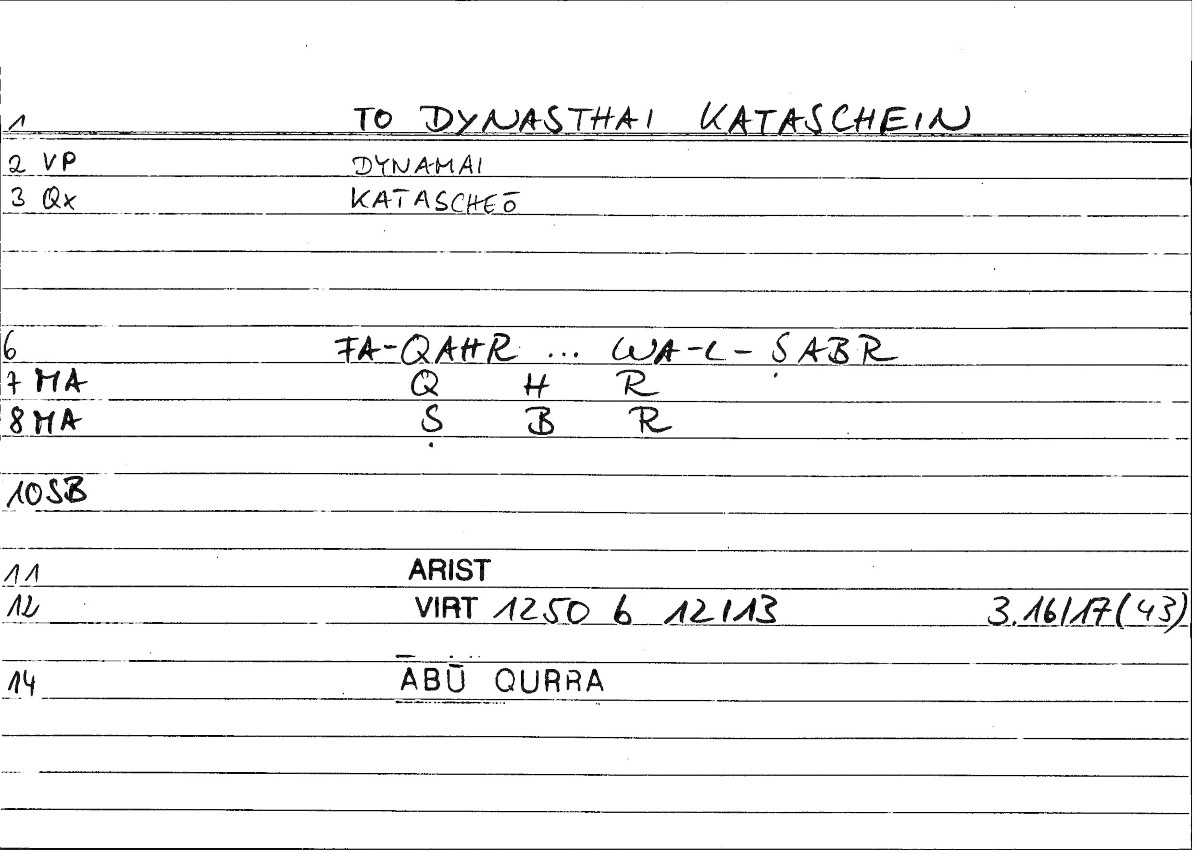 1 TO DYNASTHAI KATASCHEIN
2 VP DYNAMAI
3 Qx KATASCHEŌ
6 FA-QAHR ... WA-L-ṢABR
7 MA Q H R
8 MA Ṣ B R
10 SB
11 ARIST
12 VIRT 1250 b 12/13 3.16/17(43)
14 ĀBŪ QURRA